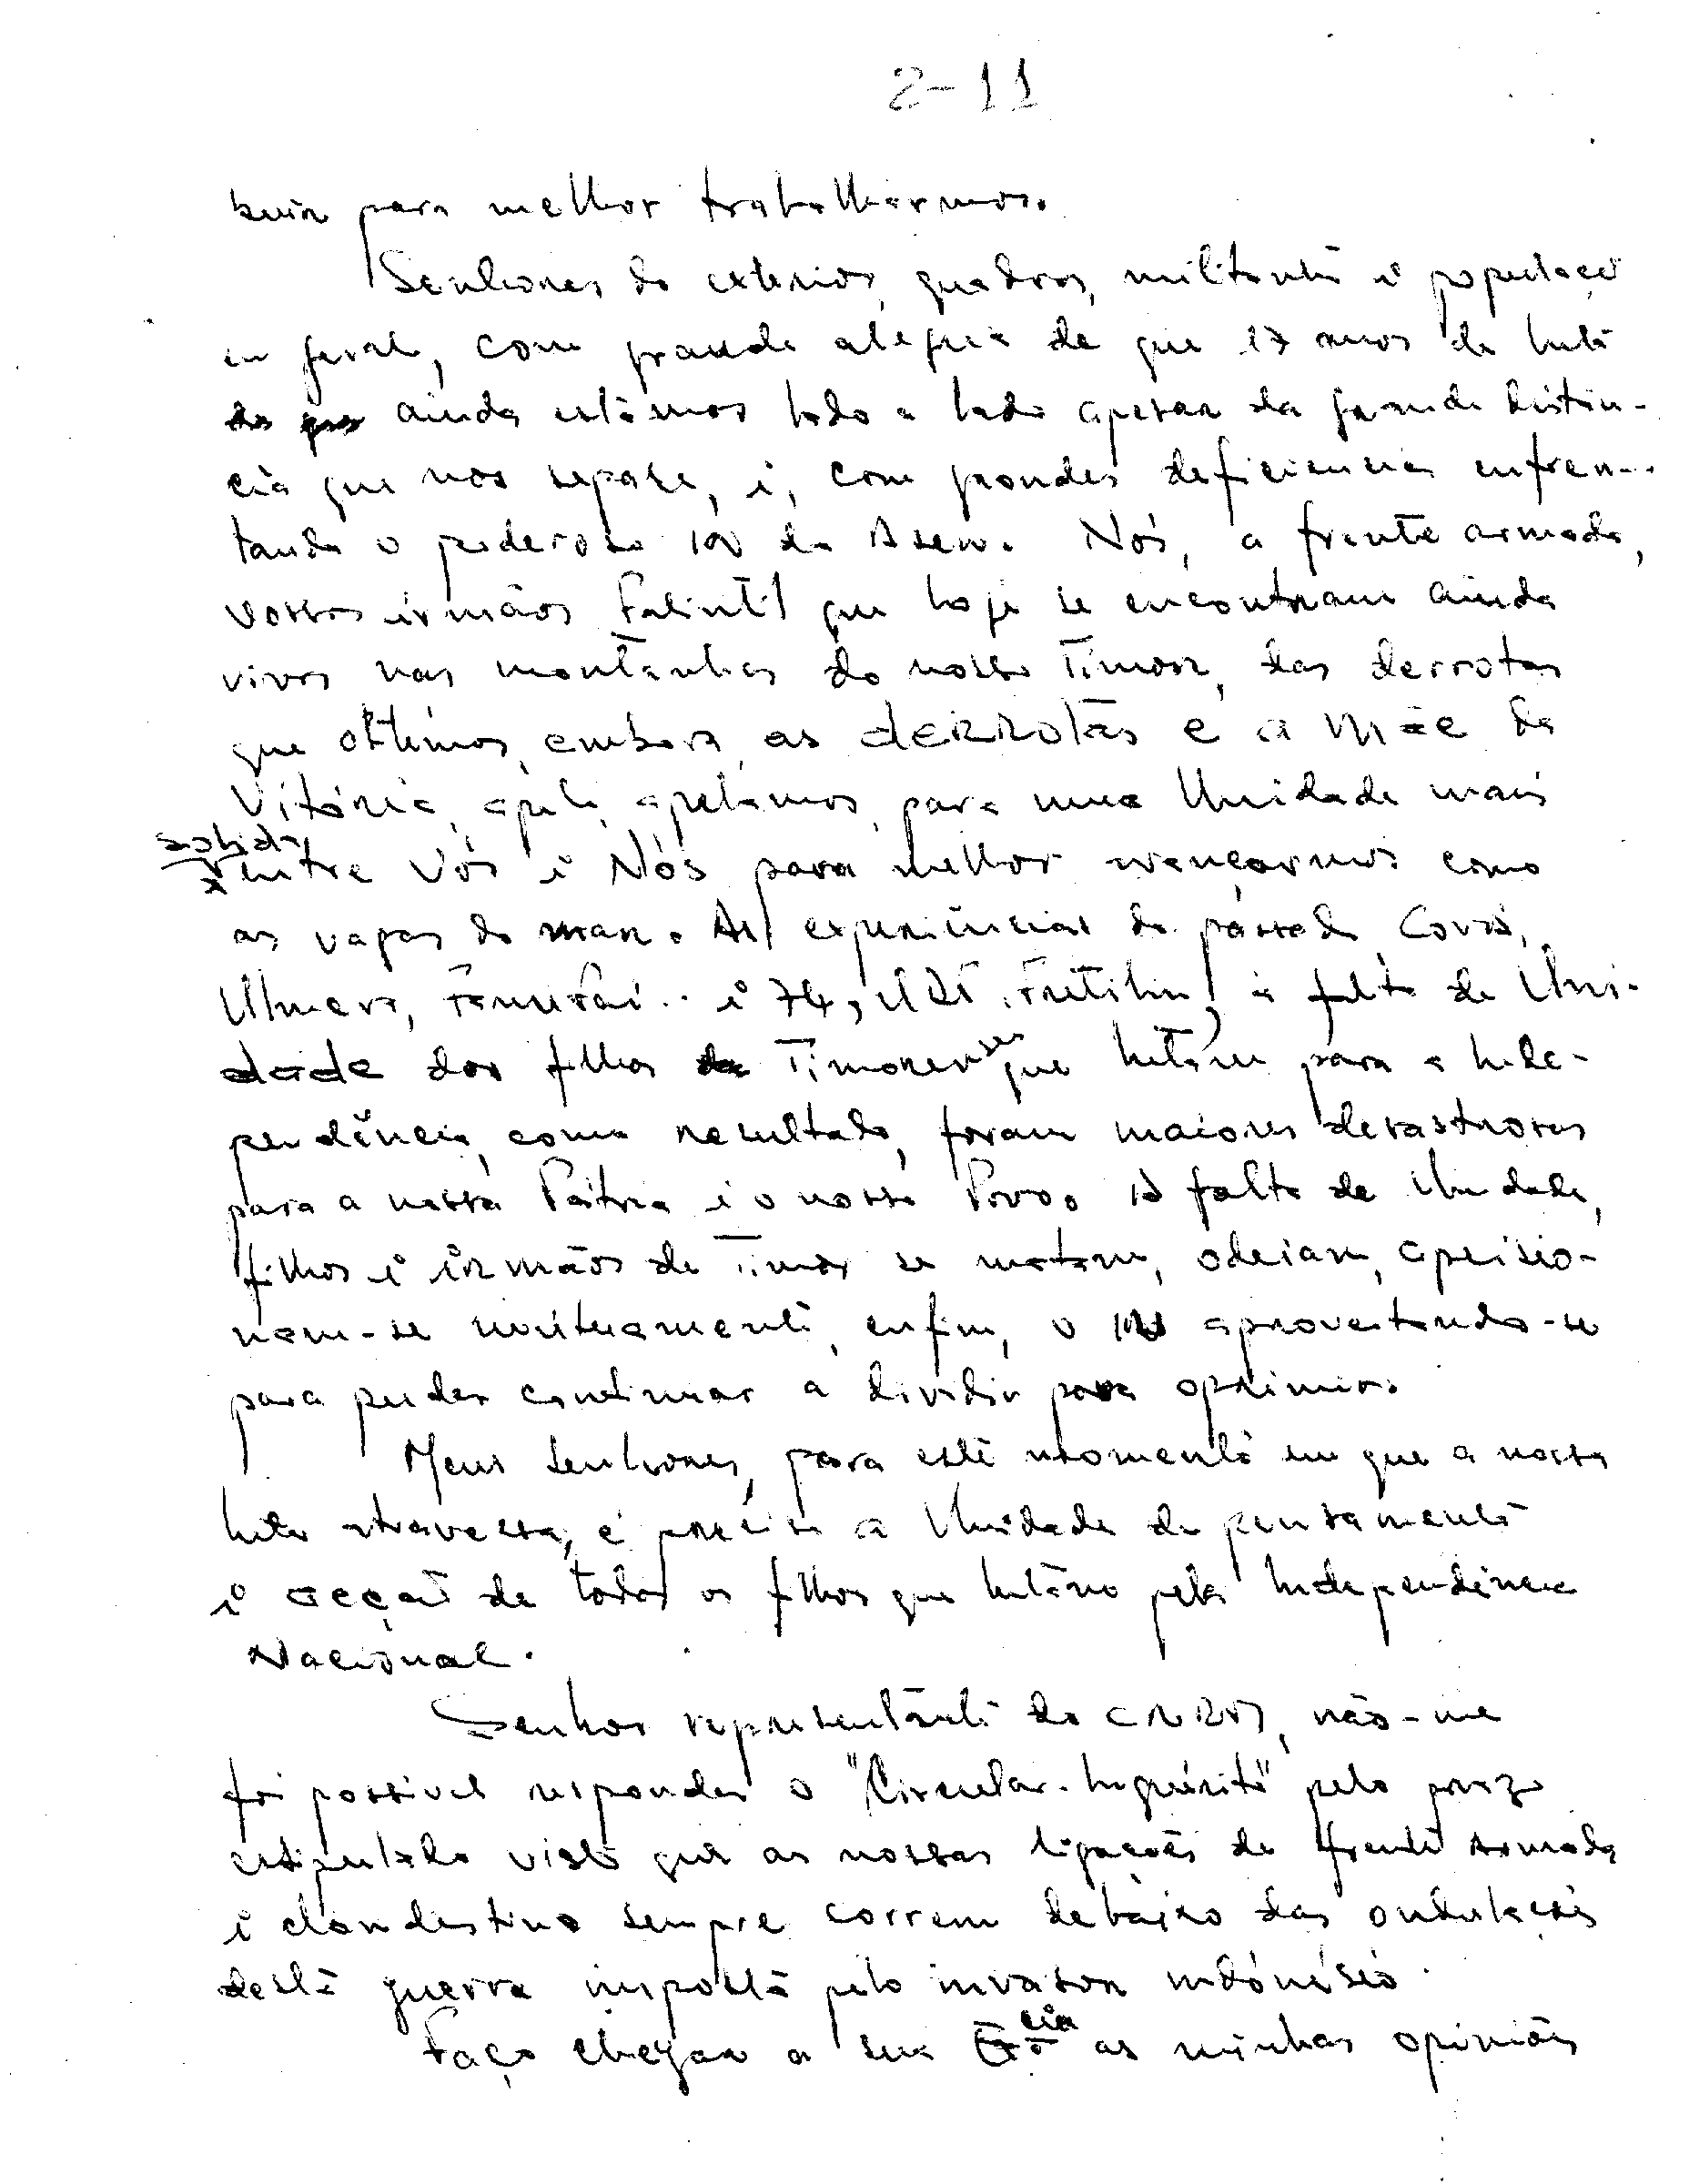 2-11
buir para melhor trabalharmos.
Senhores do exterior, quadros, militante e populaçõ
em geral, com grande alegria de que 17 anos de luta
ainda estámos lado a lado apesar da grande distân-
cia que nos separa, e, com grandes deficiencias enfren-
tando o poderoso da Asean. Nós, a frente armada,
vossos irmãos Falintil que hoje se encontram ainda
vivos nas montanhas do nosso Timor, das derrotas
que obtémos, embora, as derrotas e a mãe da
Vitória, apelámos, para uma Unidade mais
sólida
entre Vós e Nós para melhor avançarmos como
as vagas do mar. As experiências do passado,
e 74, UDT. Fretilin, a falta de Uni-
dade dos filhos Timorenses que lutám para a Inde-
pendência, como resultado, foram maiores desastrosos
para a nossa Pátria e o nosso Povo. A falta de Unidade,
filhos e irmãos de Timor se matam, odeiam, aprisio-
nam-se mutuamente, enfim, o aproveitando-se
para puder continuar a dividir para oprimir.
Meus Senhores, para este momento em que a nossa
luta atravessa, é preciso a Unidade de pensamento
e acção de todos os filhos que lutám pela Independência
Nacional.
Senhor representante do CNRM, não-me
foi possivel responder o "Circular-Inquérito" pelo prazo
estipulado visto que as nossas ligações da frente Armada
e clandestina sempre correm debaixo das ondulações
desta guerra imposta pelo invasor indónésio.
Faço chegar a sua Excia as minhas opiniões